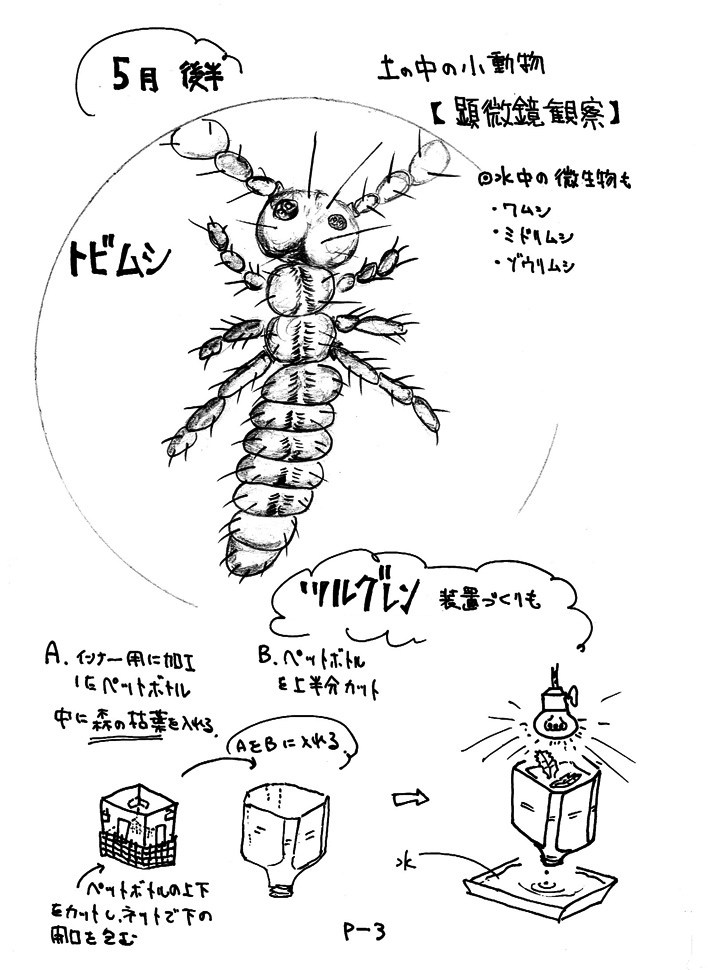 5月 後半
土の中の小動物
【顕微鏡観察】
◎水中の微生物も
・ワムシ
・ミドリムシ
・ゾウリムシ
トビムシ
ツルグレン 装置づくりも
A. インナー用に加工
したペットボトル
中に森の枯葉を入れる。
B. ペットボトル
を上半分カット
AをBに入れる
水
ペットボトルの上下
をカットし、ネットで下の
開口を包む
P-3